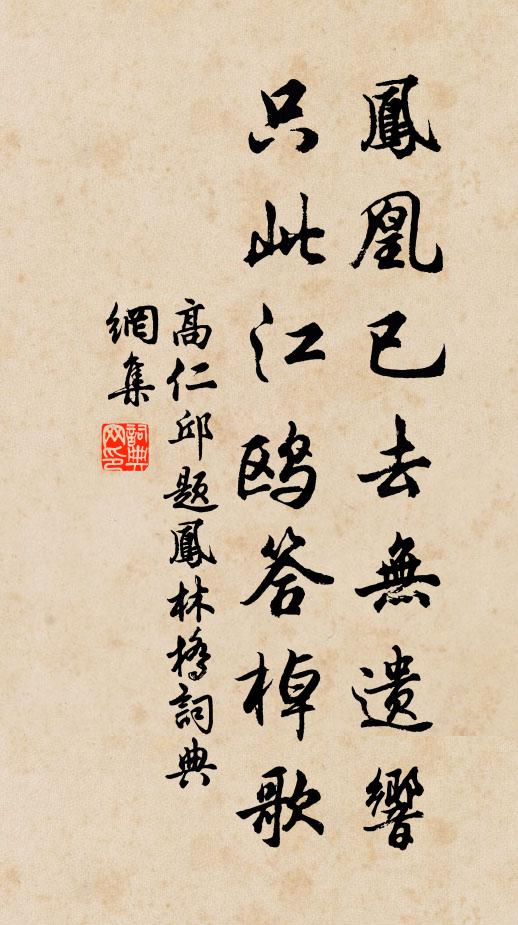 鳳凰已去無遺響
只此江鸥答棹歌
高仁邱題鳳林橋詞典
網集
詞典网印